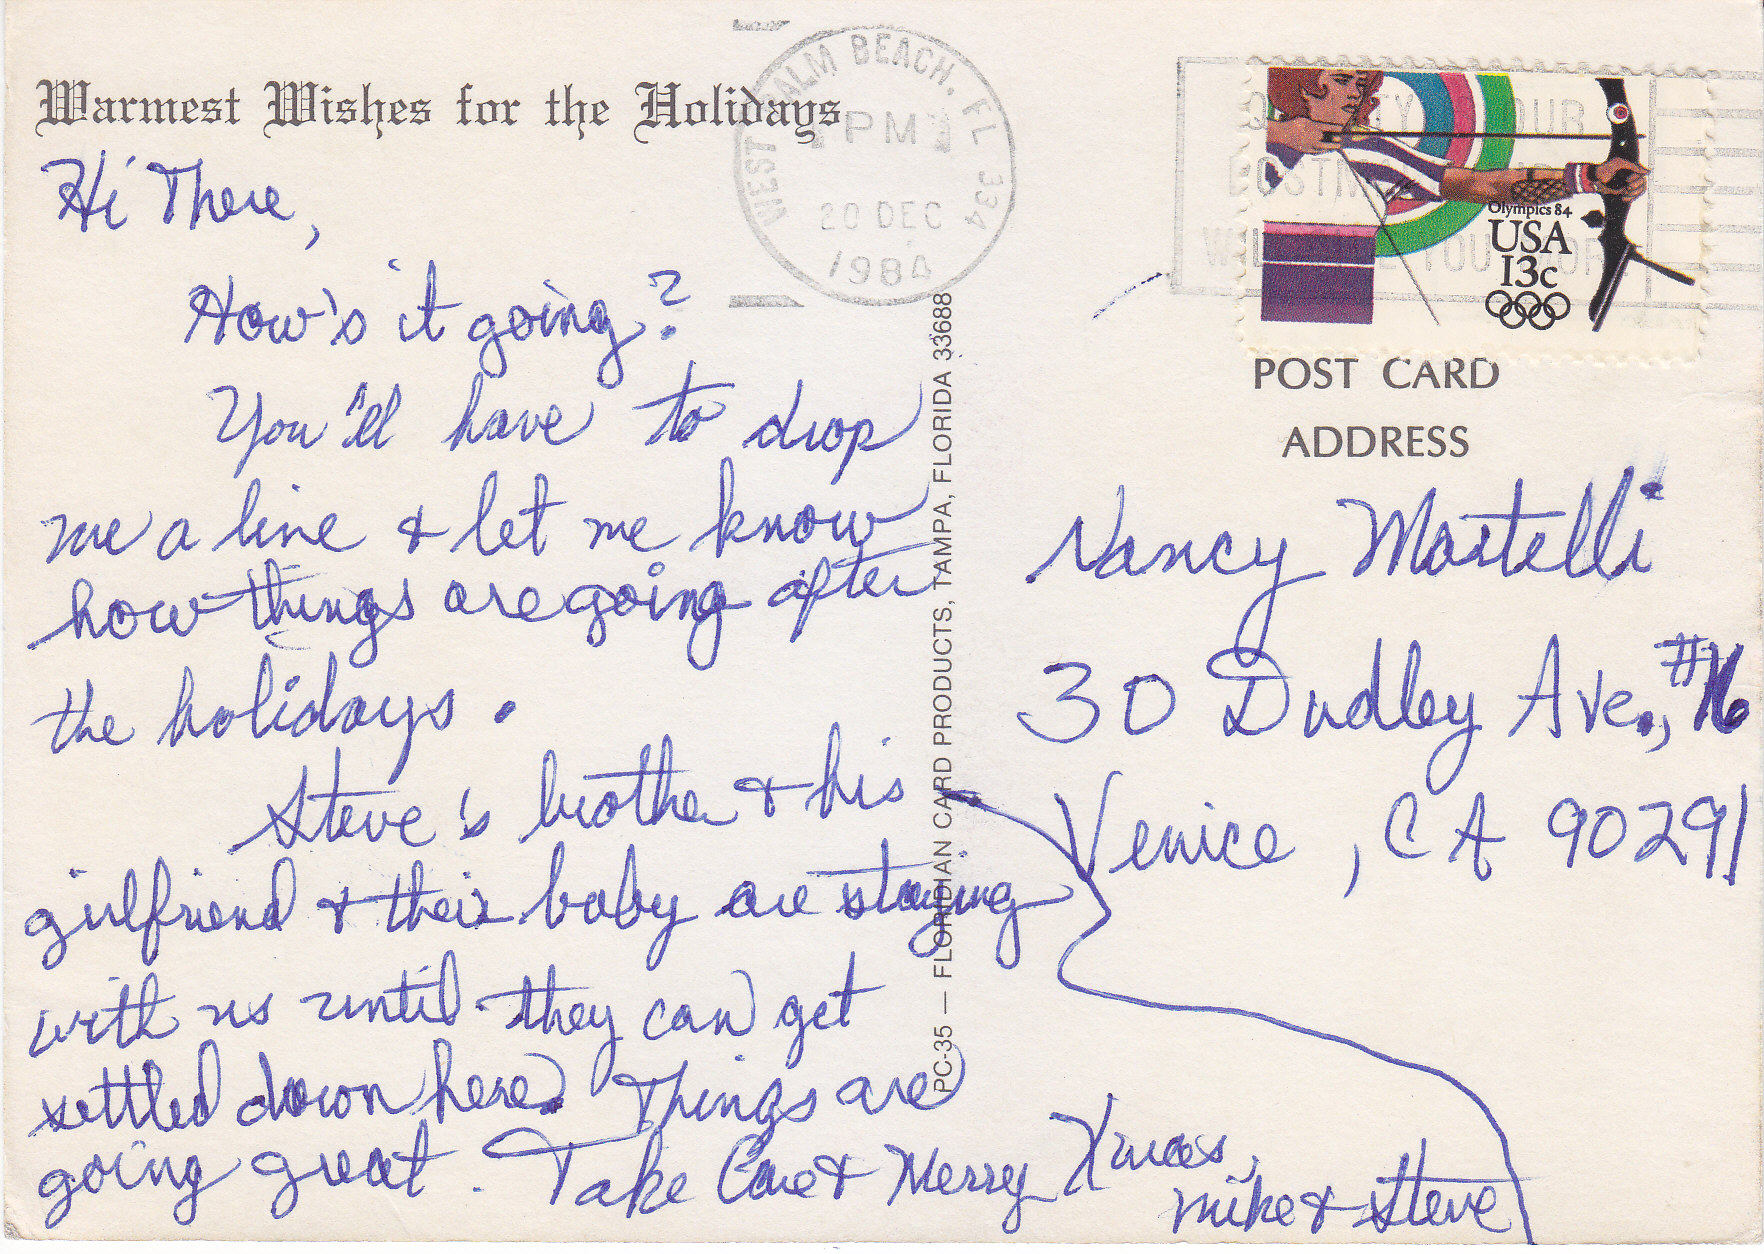 Warmest Wishes for the Holidays
Hi There,
How's it going?
You'll have to drop
me a line & let me know
how things are going after
the holidays.
Steve's brother & his
girlfriend & their baby are staying
with us until they can get
settled down here. Things are
going great. Take Care & Merry Xmas,
Mike & Steve
WEST PALM BEACH, FL 334
PM
20 DEC
1984
Olympics 84
USA
13c
POST CARD
ADDRESS
Nancy Martelli
30 Dudley Ave., #16
Venice, CA 90291
PC-35 — FLORIDIAN CARD PRODUCTS, TAMPA, FLORIDA 33688